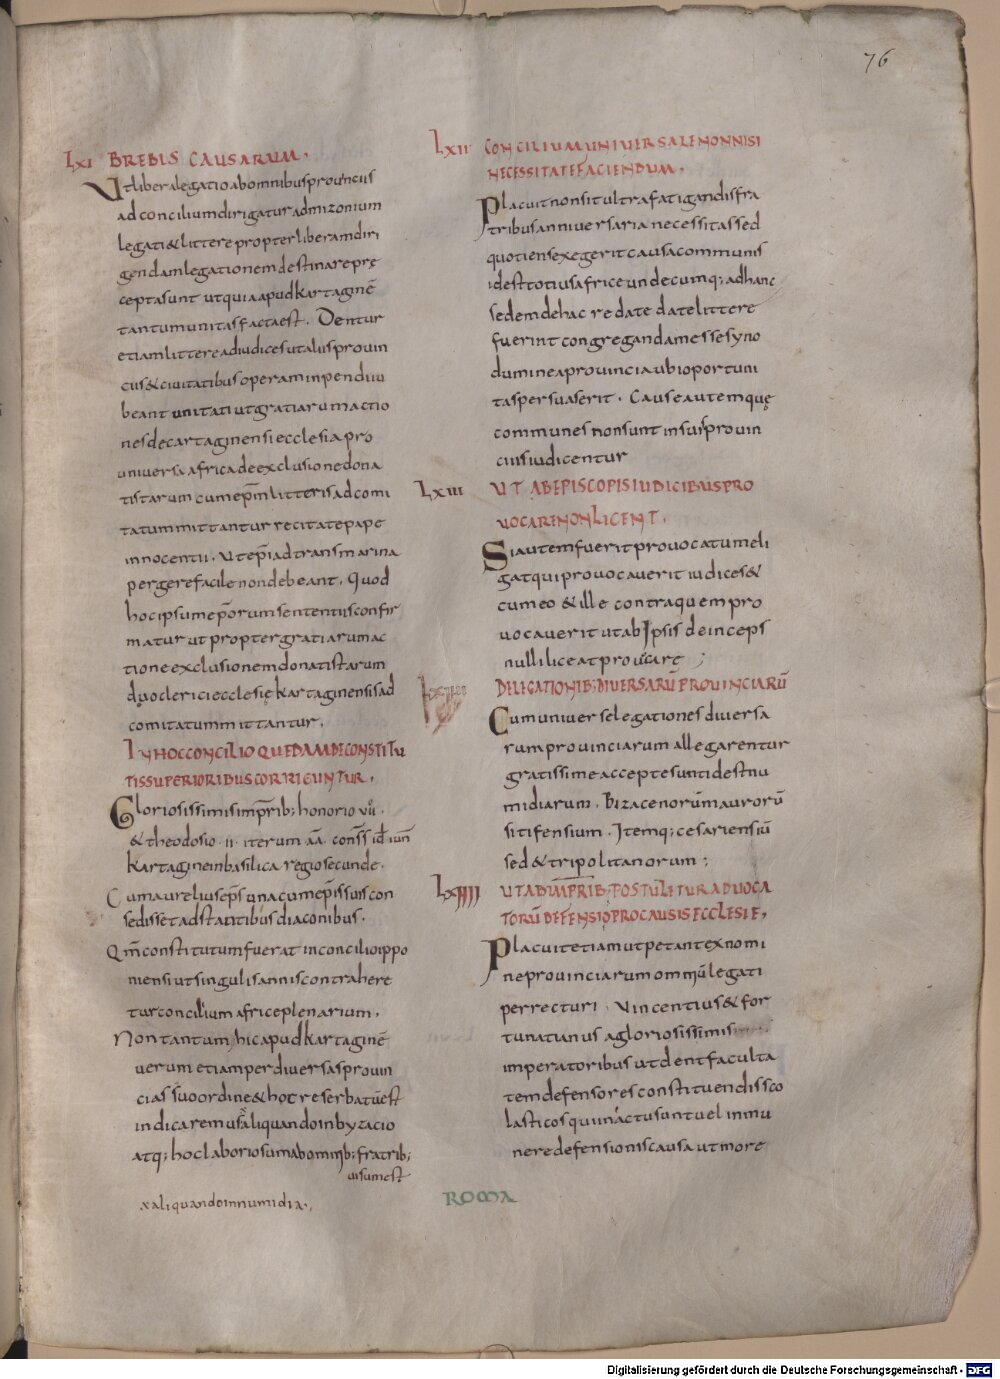 76
LXI BREBIS CAUSARUM.
Ut libera legatio ab omnibus prouinciis
ad concilium dirigatur ad mizonium
legati & littere propter liberam diri
gendam legationem destinare prę
cepta sunt ut quia apud kartaginē
tantum unitas facta est. Dentur
etiam littere ad iudices ut aliis prouin
ciis & ciuitatibus operam inpendi iu
beant unitati ut gratiarum actio
nes de cartaginensi ecclesia pro
uniuersa africa de exclusione dona
tistarum cum ep̄m litteris ad comi
tatum mittantur recitate pape
innocentii. Ut ep̄i ad transmarina
pergere facile non debeant. Quod
hoc ipsum ep̄orum sententiis confir
matur ut propter gratiarum ac
tione exclusionem donatistarum
duo clerici ecclesię kartaginensis ad
comitatum mittantur.
IN HOC CONCILIO QUEDAM DE CONSTITU
TIS SUPERIORIBUS CORRIGUNTUR.
Gloriosissimis imp̄rib; honorio vii
& theodosio ·ii· iterum āā. cons̄s̄ id̄ iun̄
kartagine in basilica regio secunde.
Cum aurelius ep̄s una cum ep̄is suis con
sedisset adstantibus diaconibus.
Qm̄ constitutum fuerat in concilio ippo
niensi ut singulis annis contrahere
tur concilium africe plenarium.
Non tantum hic apud kartaginē
uerum etiam per diuersas prouin
cias suo ordine & hoc reserbatū est
indicaremus aliquando in byzacio
atq; hoc laboriosum ab omnib; fratrib;
uisum est
x aliquando in numidia.
LXII CONCILIUM UNIUERSALE NON NISI
NECESSITATE FACIENDUM.
Placuit non sit ultra fatigandis fra
tribus anniuersaria necessitas sed
quotiens exegerit causa communis
id est totius africe undecumq; ad hanc
sedem de hac re date date littere
fuerint congregandam esse syno
dum in ea prouincia ubi oportuni
tas persuaserit. Cause autem quę
communes non sunt in suis prouin
ciis iudicentur
LXIII UT AB EPISCOPIS IUDICIBUS PRO
UOCARE NON LICENT.
Si autem fuerit prouocatum eli
gat qui prouocauerit iudices &
cum eo & ille contra quem pro
uocauerit ut ab Ipsis deinceps
nulli liceat prouocare ;
LXIIII DE LEGATIONIB; DIUERSARŪ PROUINCIARŪ
Cum uniuerse legationes diuersa
rum prouinciarum allegarentur
gratissime accepte sunt id est nu
midiarum. Bizacenorūm aurorū
sitifensium. Itemq; cesariensiū
sed & tripolitanorum ;
LXIIII UT AB IMP̄RIB; POSTULETUR ADUOCA
TORŪ DEFENSIO PRO CAUSIS ECCLESIE.
Placuit etiam ut petant ex nomi
ne prouinciarum omniū legati
perrecturi. Uincentius & for
tunatianus a gloriosissimis
imperatoribus ut dent faculta
tem defensores constituendis sco
lasticos qui in actu sunt uel in mu
nere defensionis causa ut more
ROMA
Digitalisierung gefördert durch die Deutsche Forschungsgemeinschaft - DFG